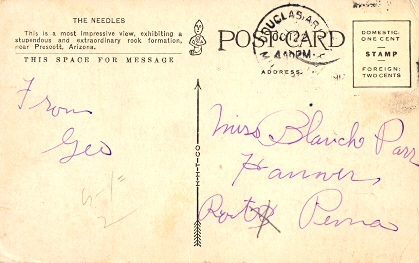 THE NEEDLES
This is a most impressive view, exhibiting a
stupendous and extraordinary rock formation,
near Prescott, Arizona.
THIS SPACE FOR MESSAGE
From
Geo
POST CARD
ADDRESS.
DOUGLAS, ARIZ
OCT 12
4 PM
DOMESTIC:
ONE CENT
STAMP
FOREIGN:
TWO CENTS
Miss Blanch Parr
Hanover,
Penna